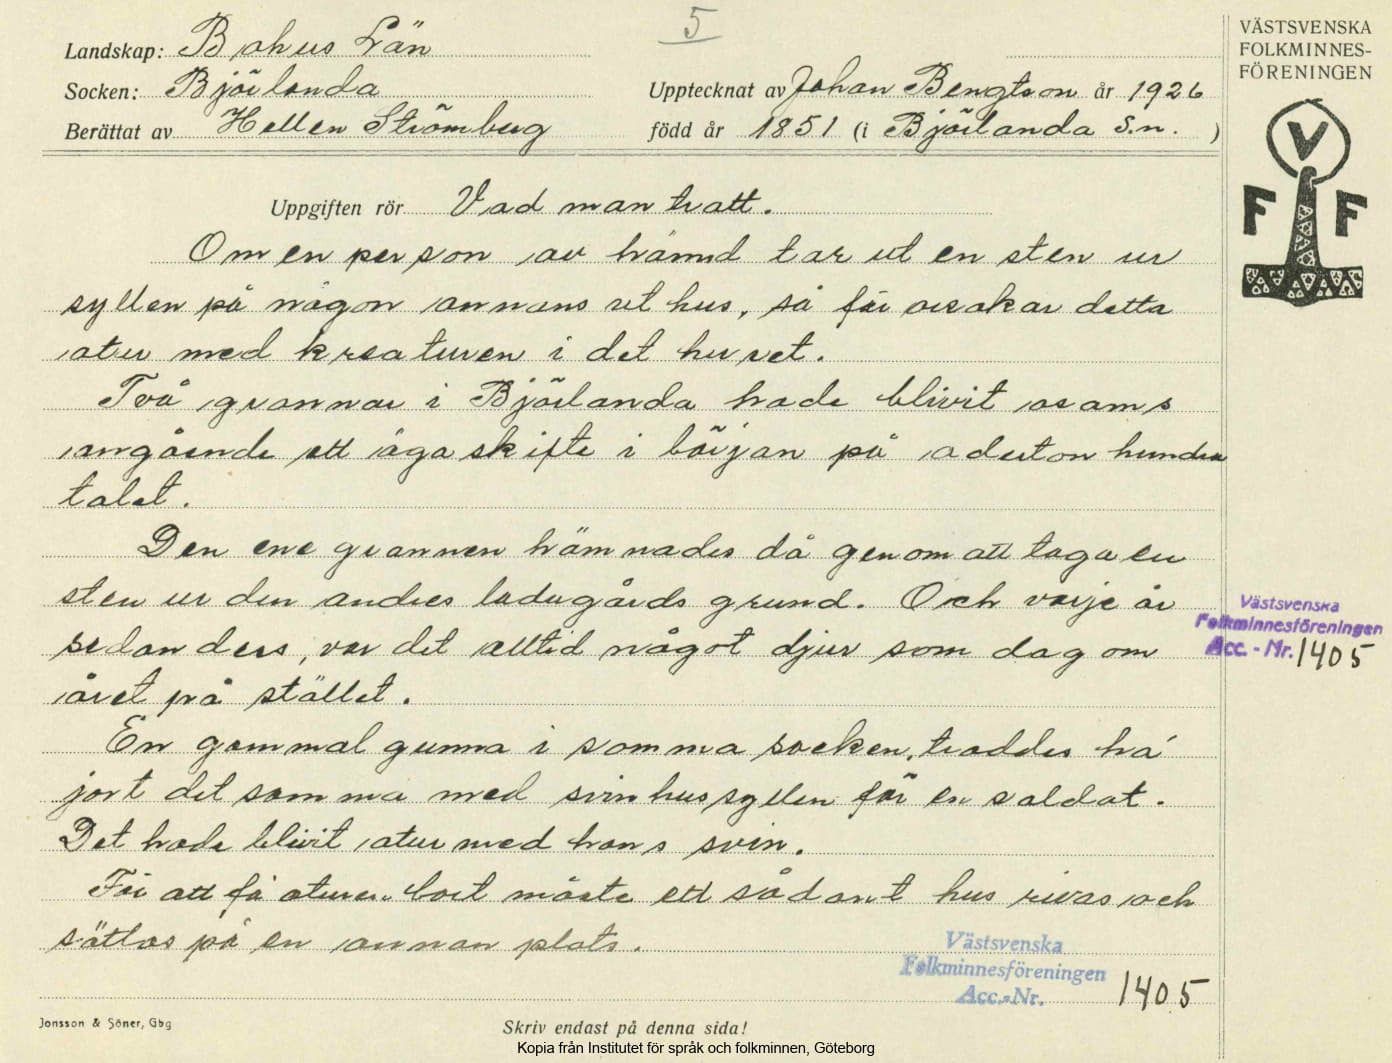 5
Landskap: Bohus Län
Socken: Björlanda
Upptecknat av Johan Bengtson år 1926
Berättat av Hellen Strömberg
född år 1851 (i Björlanda S.n. )
VÄSTSVENSKA
FOLKMINNES-
FÖRENINGEN
V
F F
Uppgiften rör Vad man trott.
Om en person av hämnd tar ut en sten ur
syllen på någon annans ut hus, så får orsakar detta
otur med kreaturen i det huset.
Två grannar i Björlanda hade blivit osams
angående ett ägaskifte i början på aderton hundra
talet.
Den ene grannen hämnades då genom att taga en
sten ur den andres ladugårds grund. Och varje år
sedan dess, var det alltid något djur som dog om
året på stället.
En gammal gumma i samma socken, troddes ha
jort det samma med svinhussyllen för en soldat.
Det hade blivit otur med hans svin.
För att få oturen bort måste ett sådant hus rivas och
sättas på en annan plats.
Västsvenska
Folkminnesföreningen
Acc. - Nr. 1405
Västsvenska
Folkminnesföreningen
Acc.-Nr. 1405
Jonsson & Söner, Gbg
Skriv endast på denna sida!
Kopia från Institutet för språk och folkminnen, Göteborg